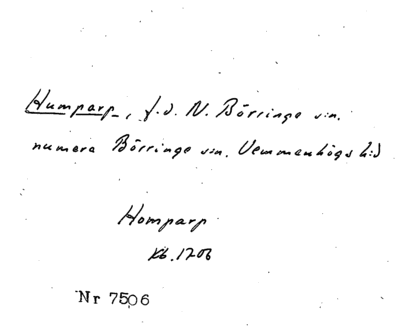 Humparp, f.d. N. Börringe sn.
numera Börringe sn. Vemmenhögs hd
Homparp
Kb. 1706
Nr 7506